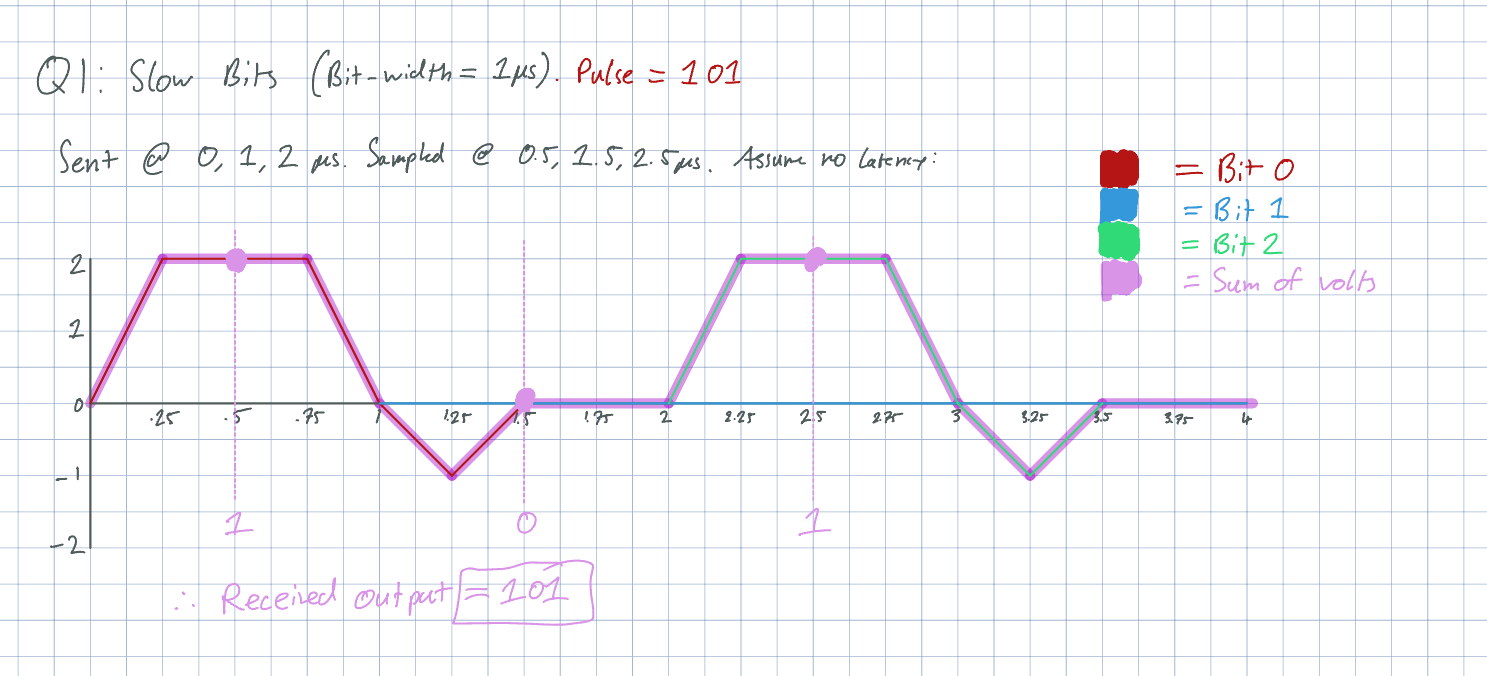 Q1: Slow Bits (Bit-width = 1µs). Pulse = 101
Sent @ 0, 1, 2 µs. Sampled @ 0.5, 1.5, 2.5µs. Assume no latency:
= Bit 0
= Bit 1
= Bit 2
= Sum of volts
2
2
0
-1
-2
.25 .5 .75 1 1.25 1.5 1.75 2 2.25 2.5 2.75 3 3.25 3.5 3.75 4
1 0 1
∴ Received output = 101